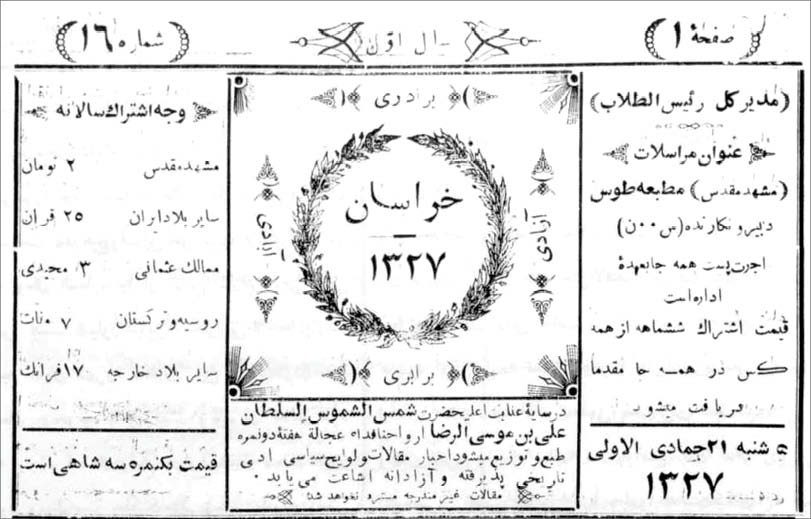 صفحهٔ ۱
سال اوّل
شماره ۱۶
(مدیر کل رئیس الطلاب)
عنوان مراسلات
(مشهد مقدس) مطبعه طوس
دبیر و نگارنده (س ۰۰ ن)
اجرت پست همه جا بعهدهٔ
اداره است
قیمت اشتراك ششماهه از همه
کس در همه جا مقدما
دریافت میشود
۵ شنبه ۲۱ جمادی الاولی
۱۳۲۷
برادری
آزادی
خراسان
۱۳۲۷
آزادی
برابری
در سایهٔ عنایت اعلیحضرت شمس الشموس السلطان
علی بن موسی الرضا ارواحنافداه عجالة هفتهٔ دو نمره
طبع و توزیع میشود اخبار مقالات و لوایح سیاسی ادبی
تاریخی پذیرفته و آزادانه اشاعت می یابد ۰
مقالات غیر مندرجه مسترد نخواهد شد
وجه اشتراك سالانه
مشهد مقدس ۲ تومان
سایر بلاد ایران ۲۵ قران
ممالك عثمانی ۳ مجیدی
روسیه و ترکستان ۷ منات
سایر بلاد خارجه ۱۷ فرانك
قیمت یکنمره سه شاهی است